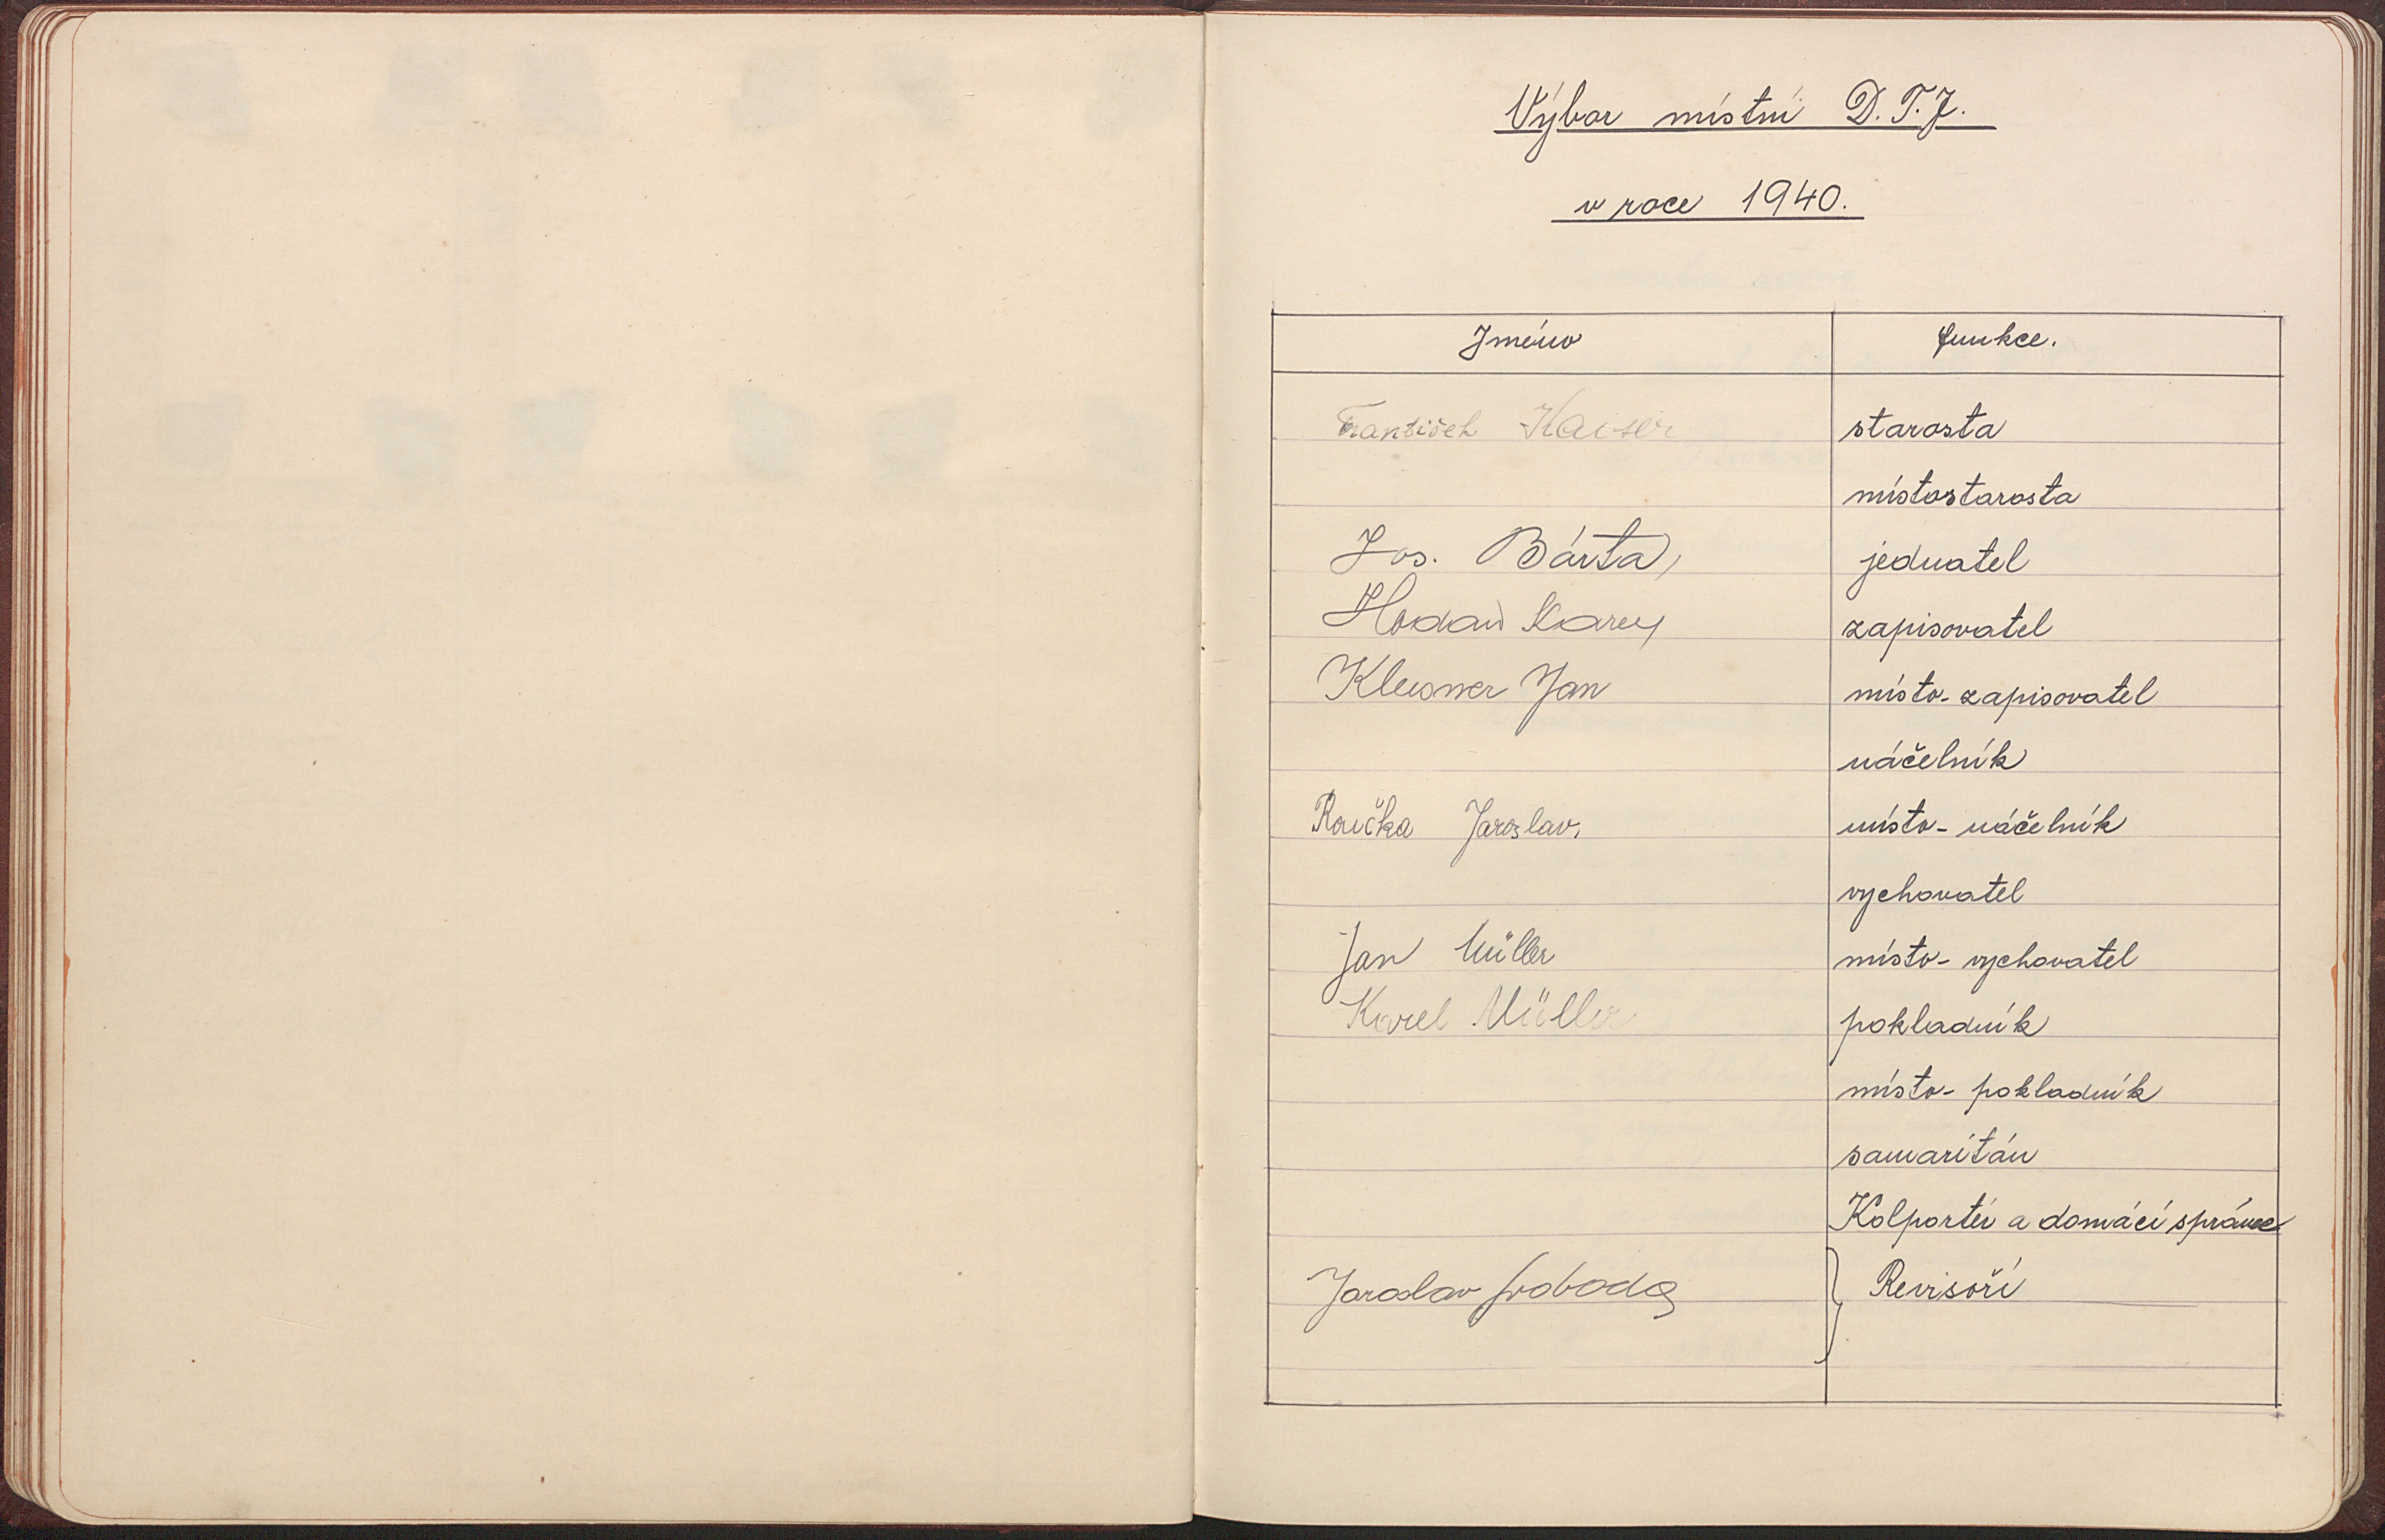 Výbor místní D.T.J.
v roce 1940.
Jméno funkce.
František Kaiser starosta
místostarosta
Jos. Bárta, jednatel
Hodan Karel zapisovatel
Kleisner Jan místo-zapisovatel
náčelník
Roučka Jaroslav. místo-náčelník
vychovatel
Jan Müller místo-vychovatel
Karel Müller pokladník
místo-pokladník
samaritán
Kolportér a domácí správce
Jaroslav Svoboda } Revisoři